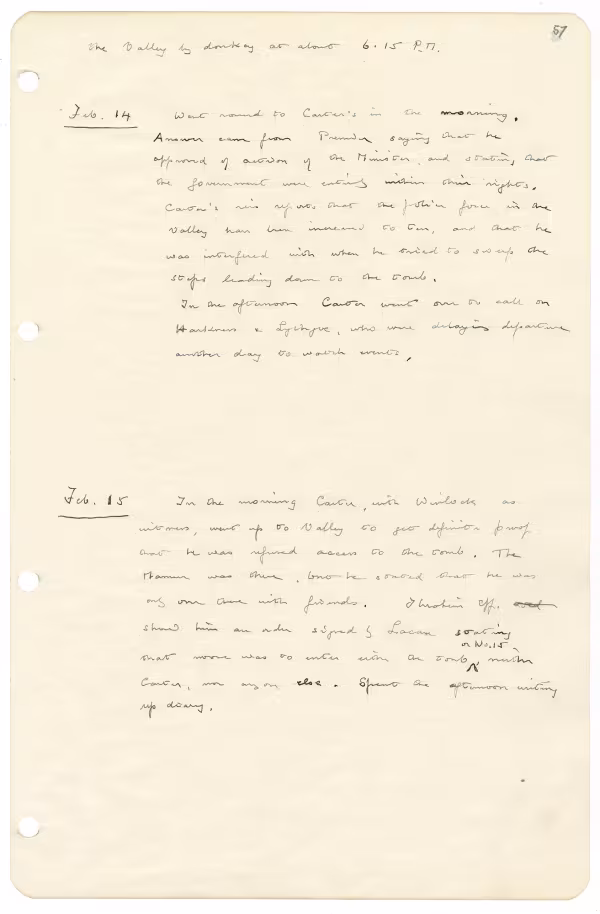 57
the Valley by donkey at about 6.15 P.M.
Feb. 14 Went round to Carter's in the morning.
Answer came from Premier saying that he
approved of action of the Minister, and stating that
the Government were entirely within their rights.
Carter's reis reports that the police force in the
Valley has been increased to ten, and that he
was interfered with when he tried to sweep the
steps leading down to the tomb.
In the afternoon Carter went over to call on
Harkness & Lythgoe, who were delaying departure
another day to watch events.
Feb. 15 In the morning Carter, with Winlock as
witness, went up to Valley to get definite proof
that he was refused access to the tomb. The
Mamur was there, but he stated that he was
only over there with friends. Ibrahim Eff. and
showed him an order signed by Lacau stating
or No. 15
that none was to enter either the tomb, neither
Carter, nor anyone else. Spent the afternoon writing
up diary.